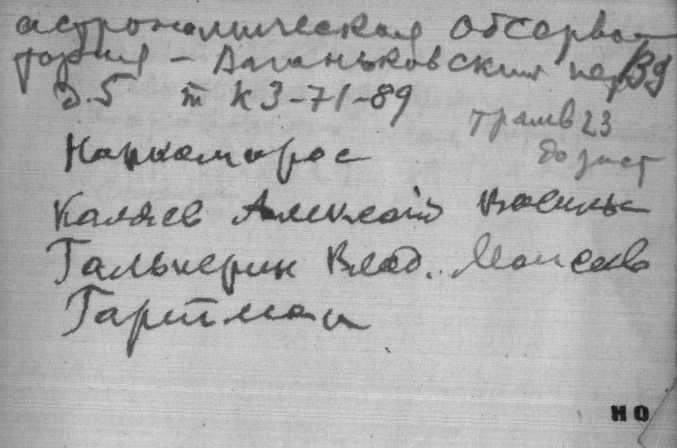 астрономическая Обсерва-
тория - Ваганьковский пер
д. 5 т К 3-71-89
трамв 23
до заст
Наркоминрос
Каляев Алексей Василь
Гальперин Влад. Моисеев
Гартман
но